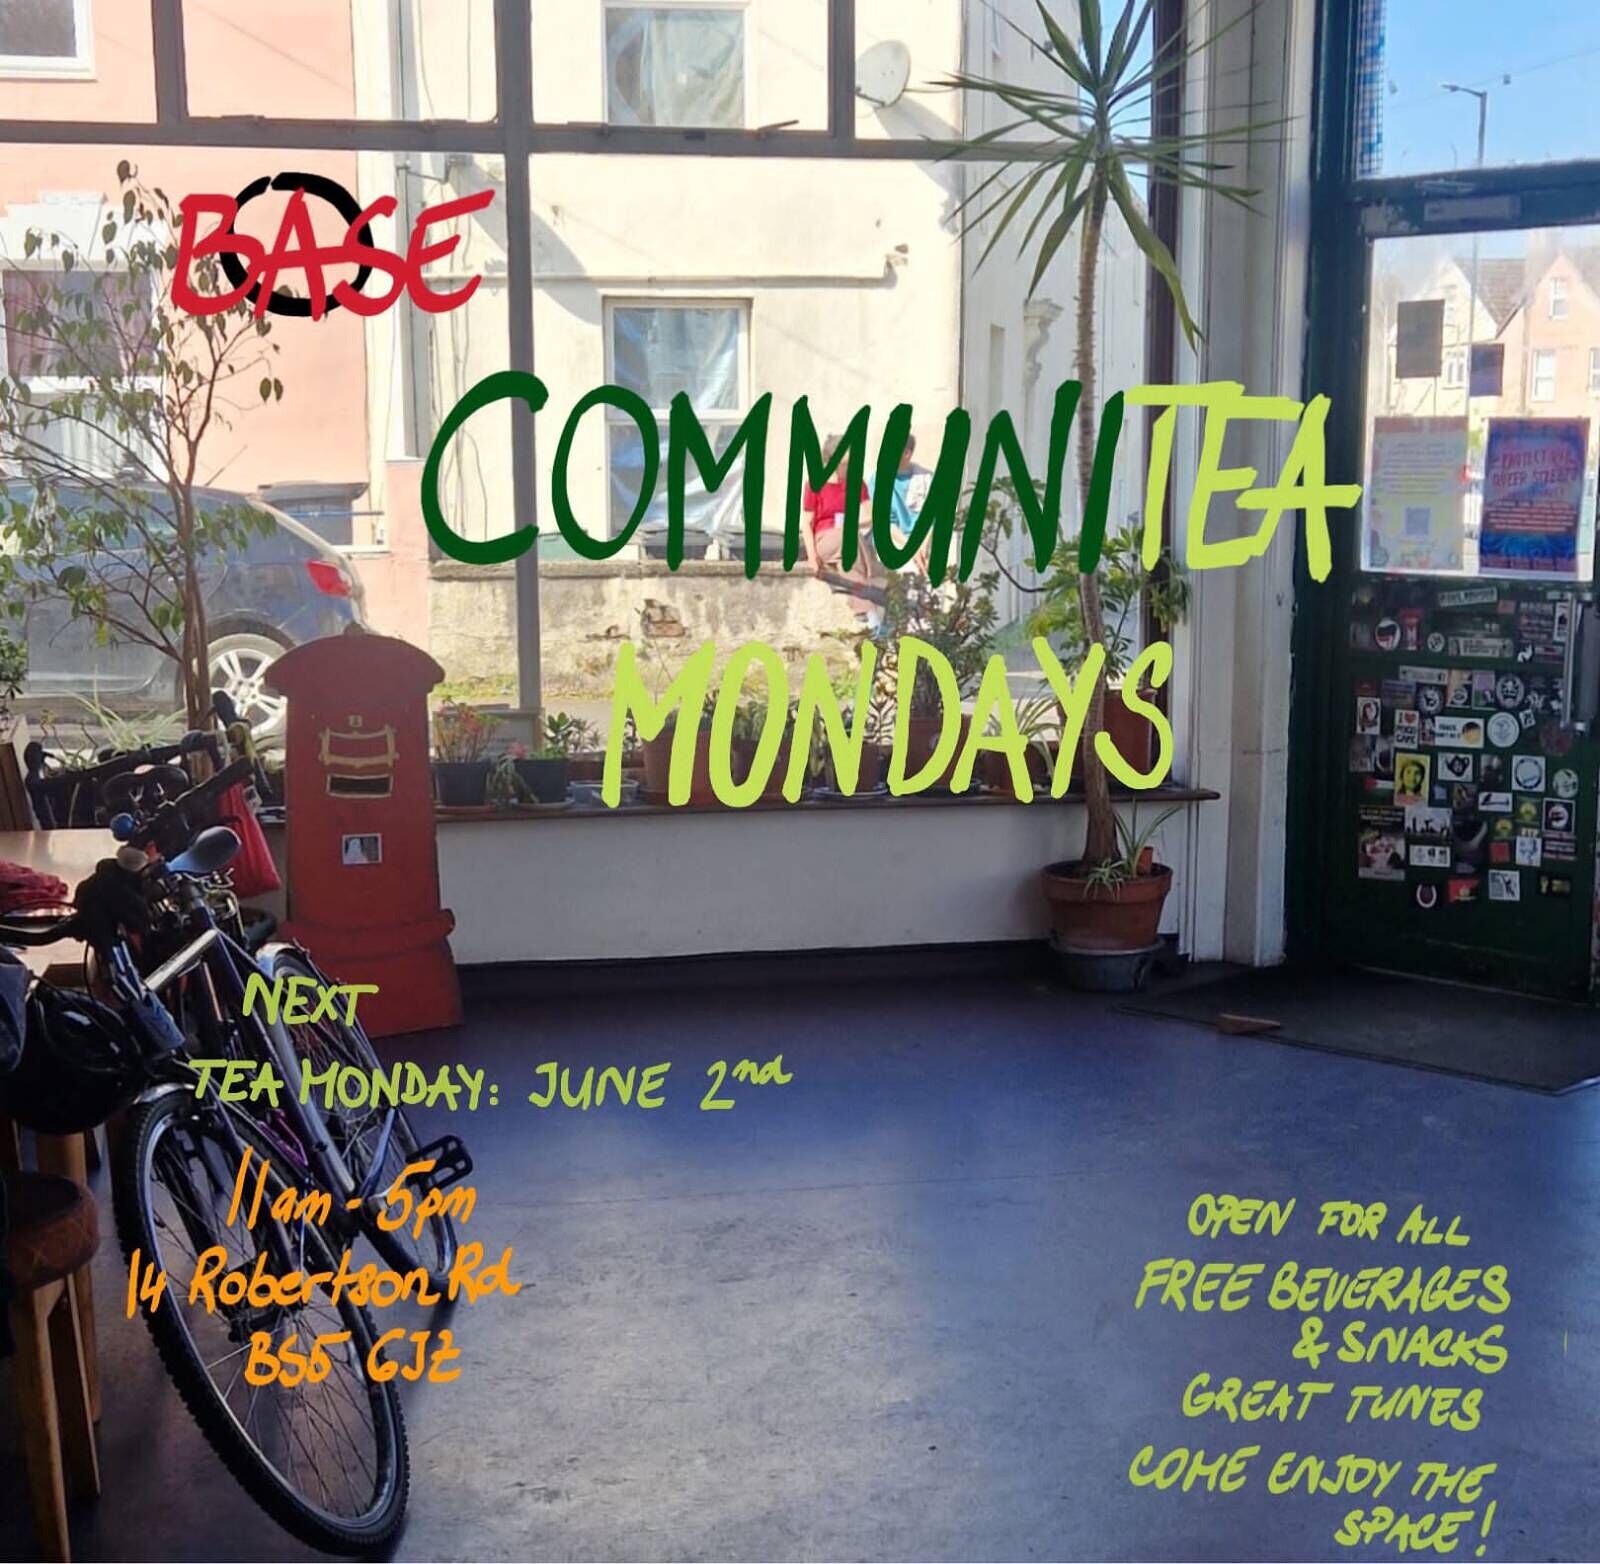 BASE
COMMUNITEA
MONDAYS
NEXT
TEA MONDAY: JUNE 2nd
11am - 5pm
14 Robertson Rd
BS5 6JZ
OPEN FOR ALL
FREE BEVERAGES
& SNACKS
GREAT TUNES
COME ENJOY THE
SPACE!